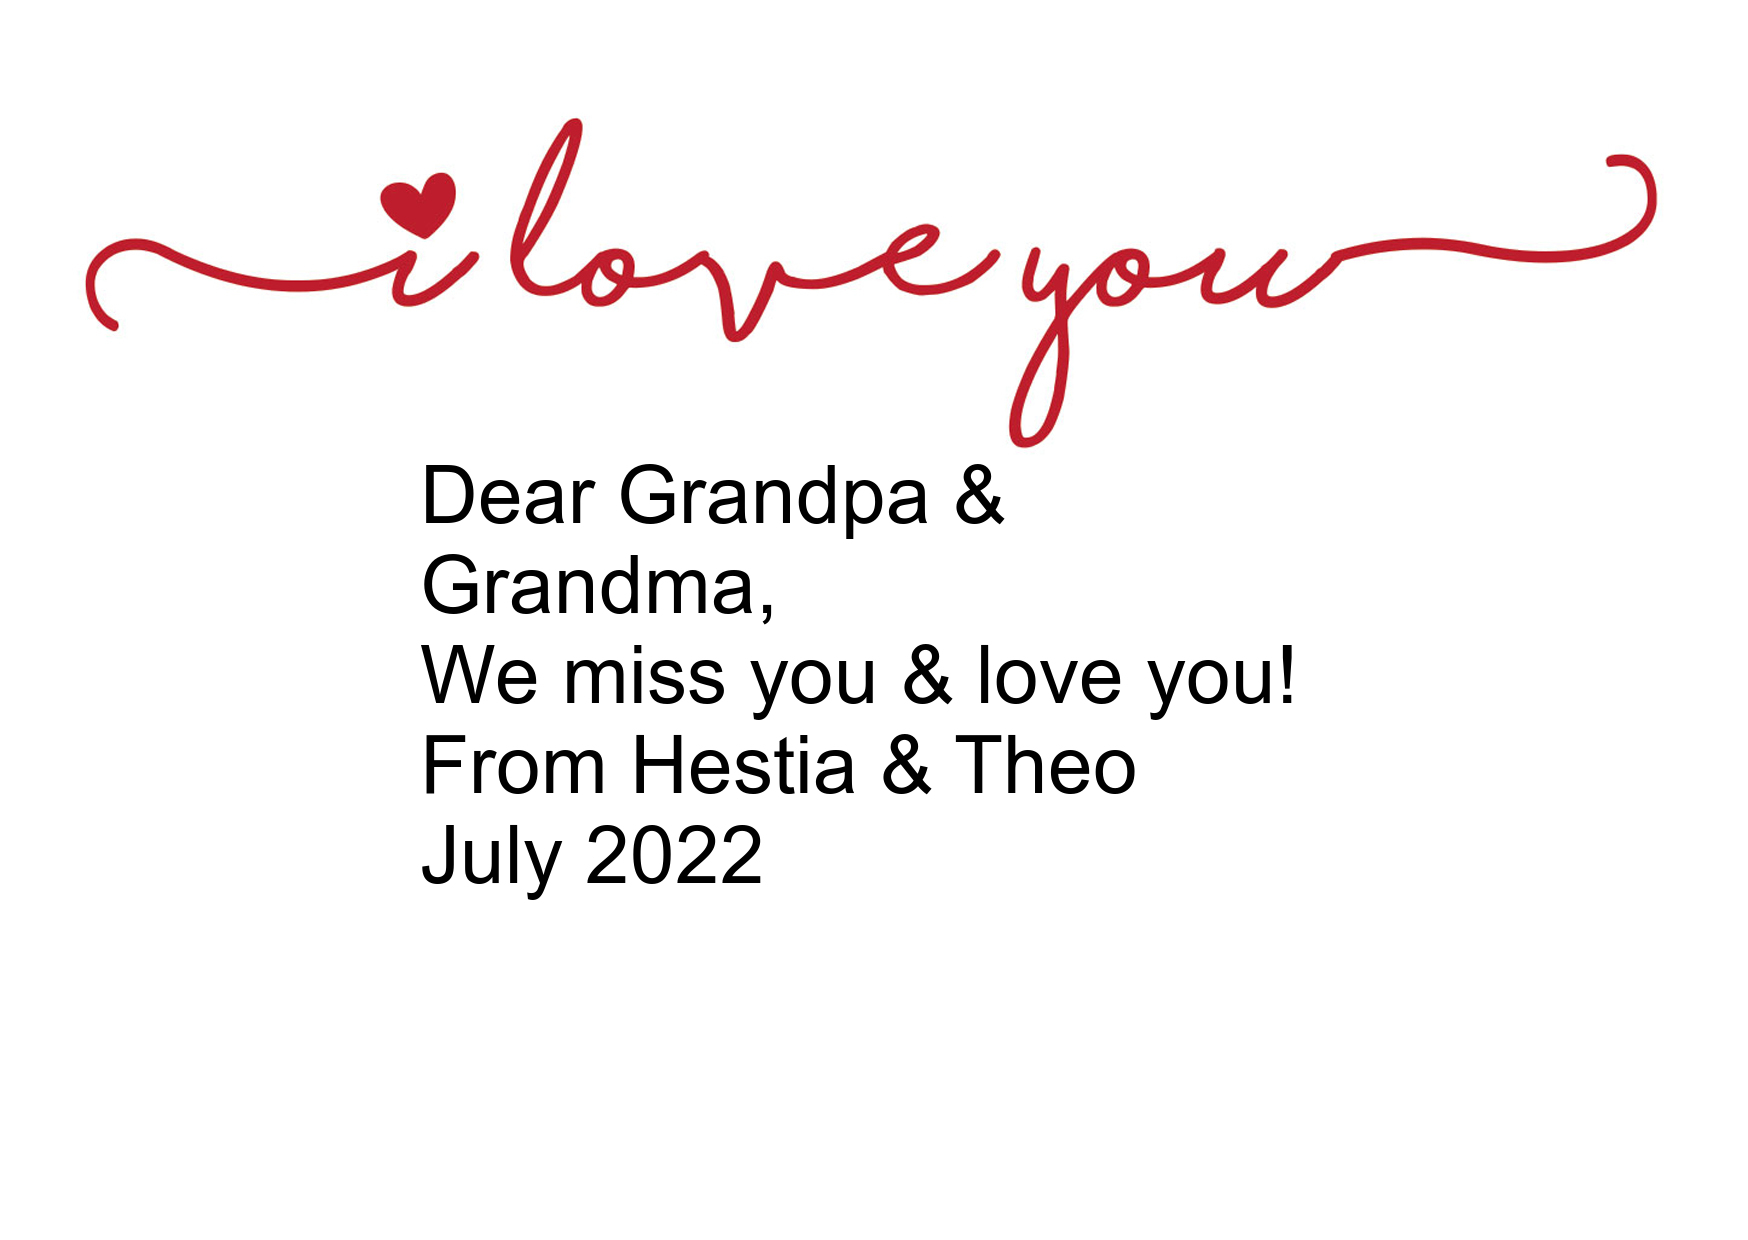 i love you
Dear Grandpa &
Grandma,
We miss you & love you!
From Hestia & Theo
July 2022